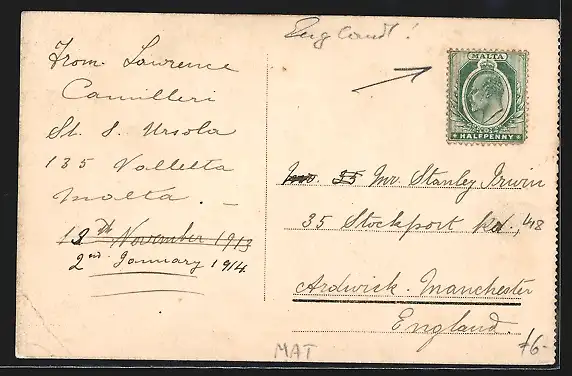 England!
From. Lawrence
Camilleri
St. S. Ursola
135 Valletta
Malta. —
13th November 1913
2nd January 1914
MALTA
HALFPENNY
35 Mr. Stanley Irwin
35 Stockport Rd.,
Ardwick. Manchester
England.
MAT